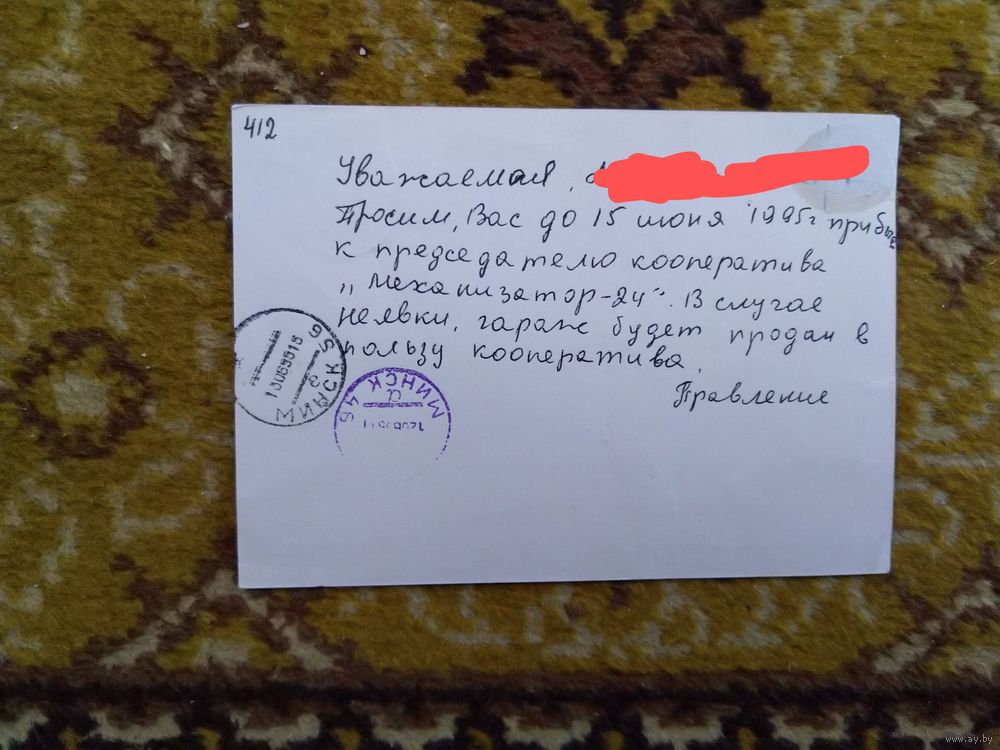 412
Уважаемая,
Просим, Вас до 15 июня 1995г прибыть
к председателю кооператива
„Механизатор-24“. В случае
неявки, гараж будет продан в
пользу кооператива
Правление
МИНСК 56
МИНСК 46
www.ay.by